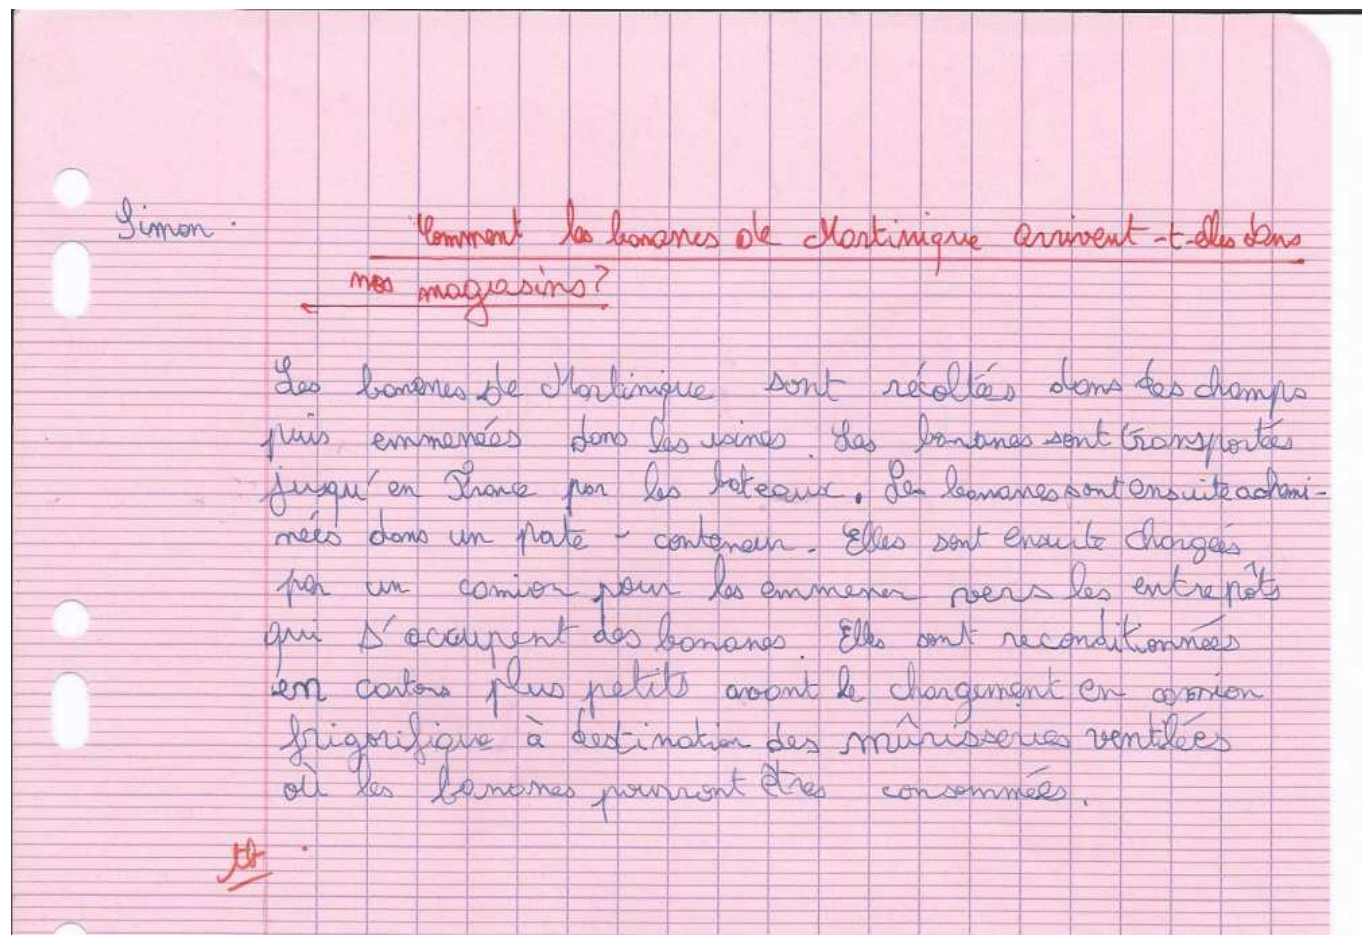 Simon.
Comment les bananes de Martinique arrivent-t-elles dans
nos magasins?
Les bananes de Martinique sont récoltés dans des champs
puis emmenées dans les usines. Les bananes sont transportées
jusqu'en France par les bateaux. Les bananes sont ensuite achemi-
neés dans un porte-conteneur. Elles sont ensuite chargées
par un camion pour les emmener vers les entrepôts
qui s'occupent des bananes. Elles sont reconditionnées
en cartons plus petits avant le chargement en camion
frigorifique à destination des mûrisseries ventilées
où les bananes pourront êtres consommées.
tb.